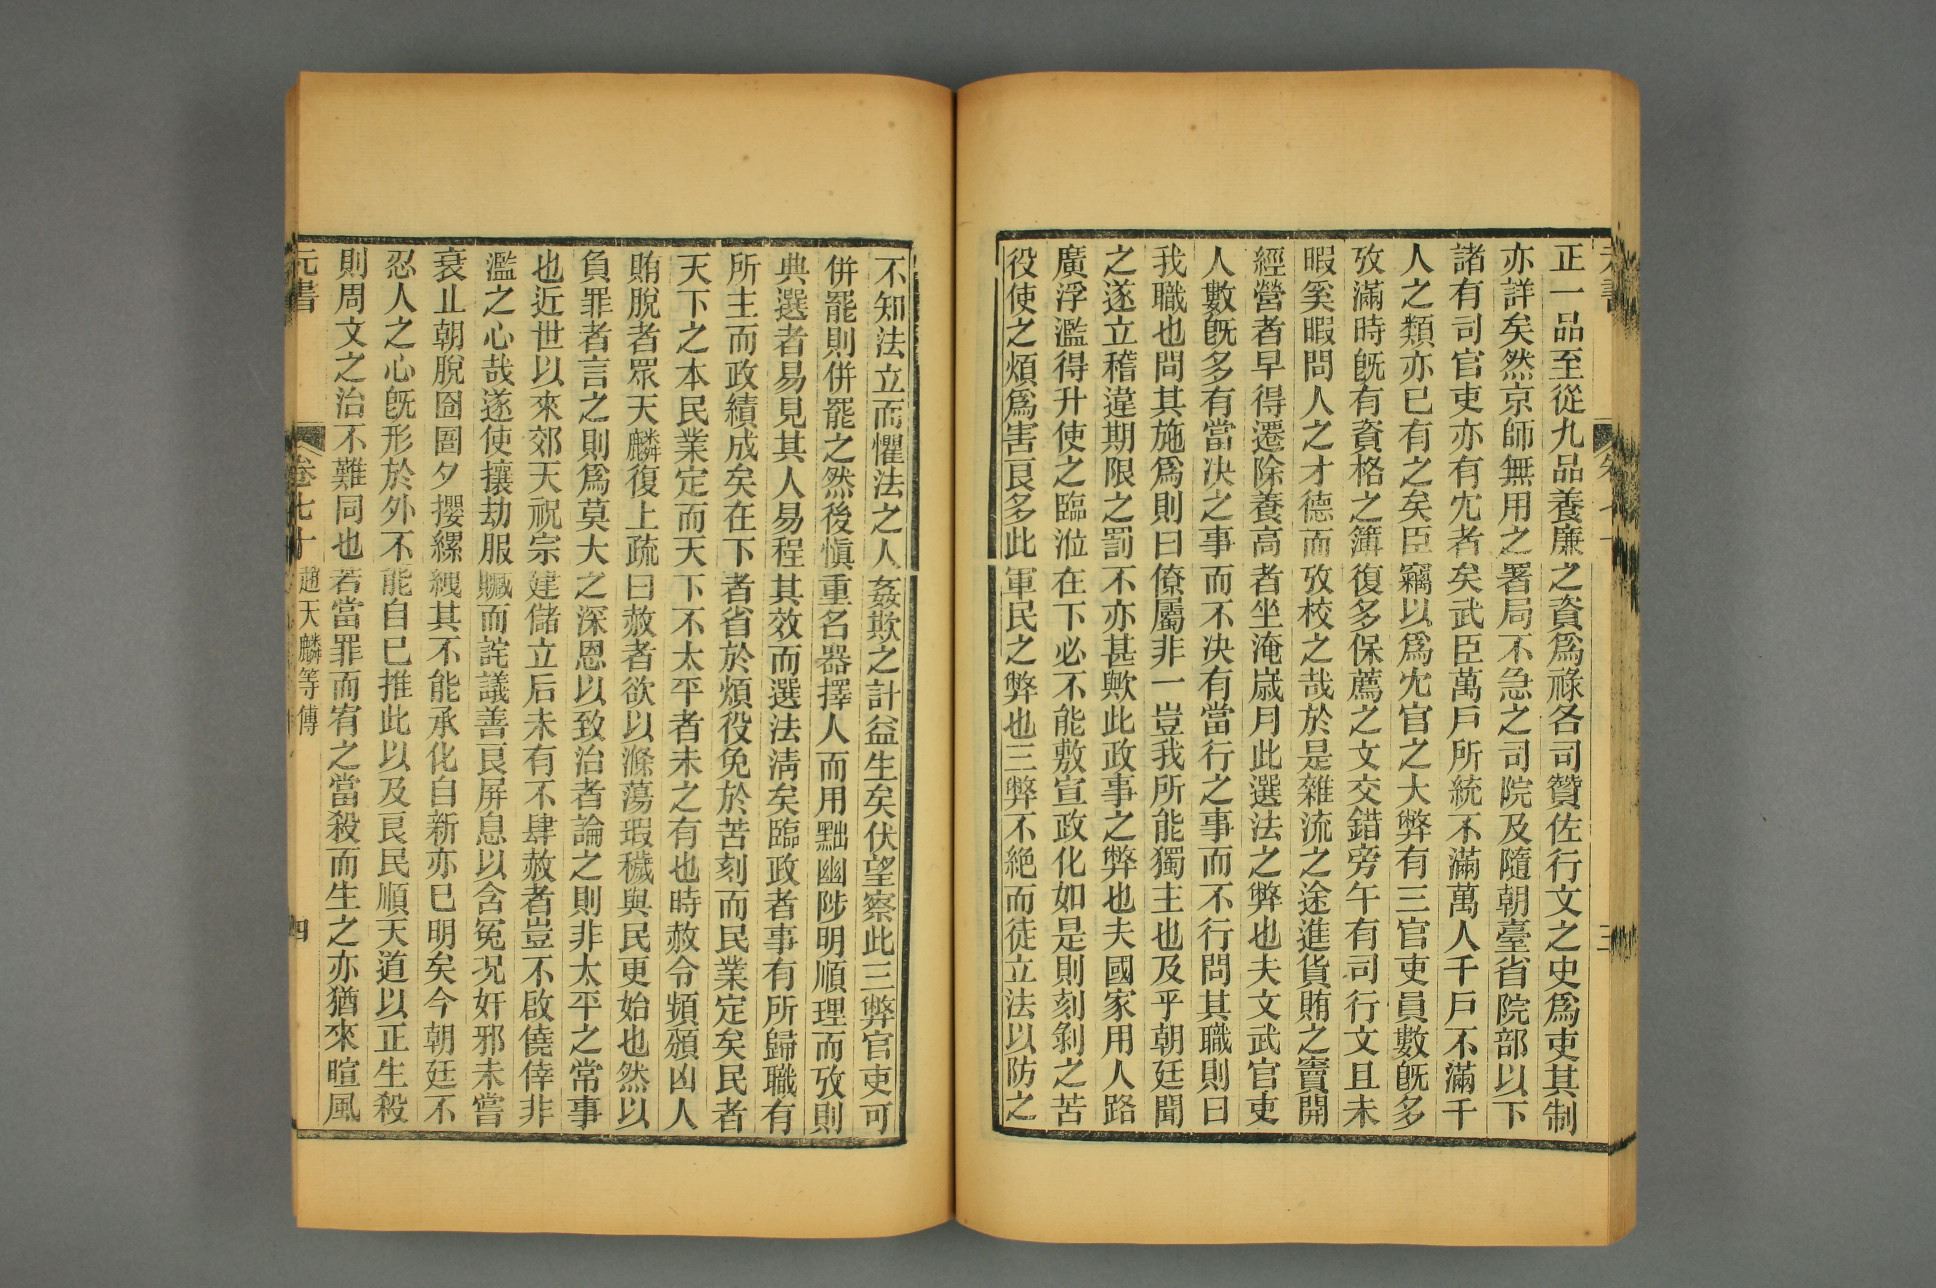 正一品至從九品養廉之資爲祿各司贊佐行文之史爲吏其制
亦詳矣然京師無用之署局不急之司院及隨朝臺省院部以下
諸有司官吏亦有冗者矣武臣萬戶所統不滿萬人千戶不滿千
人之類亦已有之矣臣竊以爲冗官之大弊有三官吏員數旣多
攷滿時旣有資格之簿復多保薦之文交錯旁午有司行文且未
暇奚暇問人之才德而攷校之哉於是雜流之途進貨賄之竇開
經營者早得遷除養高者坐淹歲月此選法之弊也夫文武官吏
人數旣多有當决之事而不决有當行之事而不行問其職則曰
我職也問其施爲則曰僚屬非一豈我所能獨主也及乎朝廷聞
之遂立稽違期限之罰不亦甚歟此政事之弊也夫國家用人路
廣浮濫得升使之臨涖在下必不能敷宣政化如是則刻剝之苦
役使之煩爲害良多此軍民之弊也三弊不絕而徒立法以防之
不知法立而懼法之人姦欺之計益生矣伏望察此三弊官吏可
併罷則併罷之然後愼重名器擇人而用黜幽陟明順理而攷則
典選者易見其人易程其效而選法淸矣臨政者事有所歸職有
所主而政績成矣在下者省於煩役免於苦刻而民業定矣民者
天下之本民業定而天下不太平者未之有也時赦令頻頒凶人
賄脫者眾天麟復上疏曰赦者欲以滌蕩瑕穢與民更始也然以
負罪者言之則爲莫大之深恩以致治者論之則非太平之常事
也近世以來郊天祝宗建儲立后未有不肆赦者豈不啟僥倖非
濫之心哉遂使攘劫服贓而詫議善良屏息以含冤况奸邪未嘗
衰止朝脫囹圄夕攖縲絏其不能承化自新亦已明矣今朝廷不
忍人之心旣形於外不能自已推此以及良民順天道以正生殺
則周文之治不難同也若當罪而宥之當殺而生之亦猶來暄風
元書 卷七十 趙天麟等傳 四